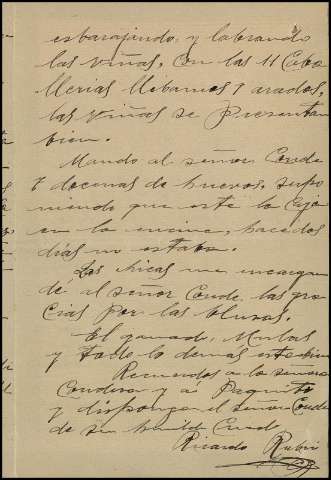 esbarajando, y labrando
las viñas, con las 11 Caba
llerias llibamos 7 arados,
las viñas se presentan
bien.
Mando al señor Conde
7 docenas de huevos, supo
niendo que este la Caja
en la
dias no estaba.
Las chicas me encargan
de al señor Conde las gra
cias por las blusas.
El ganado, Mulas
y todo lo demas este bien
Recuerdos a la señora
Condesa y a Paquito
y disponga el señor Conde
de su humilde Criado
Ricardo Rubio